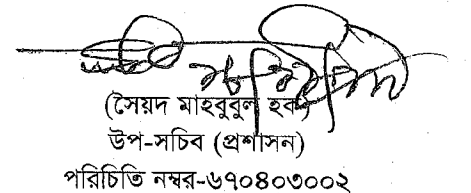 (সৈয়দ মাহবুবুল হক)
উপ-সচিব (প্রশাসন)
পরিচিতি নম্বর-৬৭০৪০৩০০২